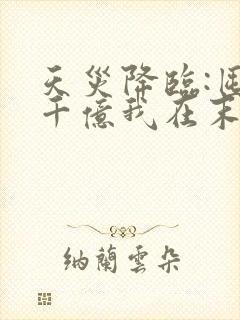 天災降臨:囤
千億我在末
納蘭雲朵